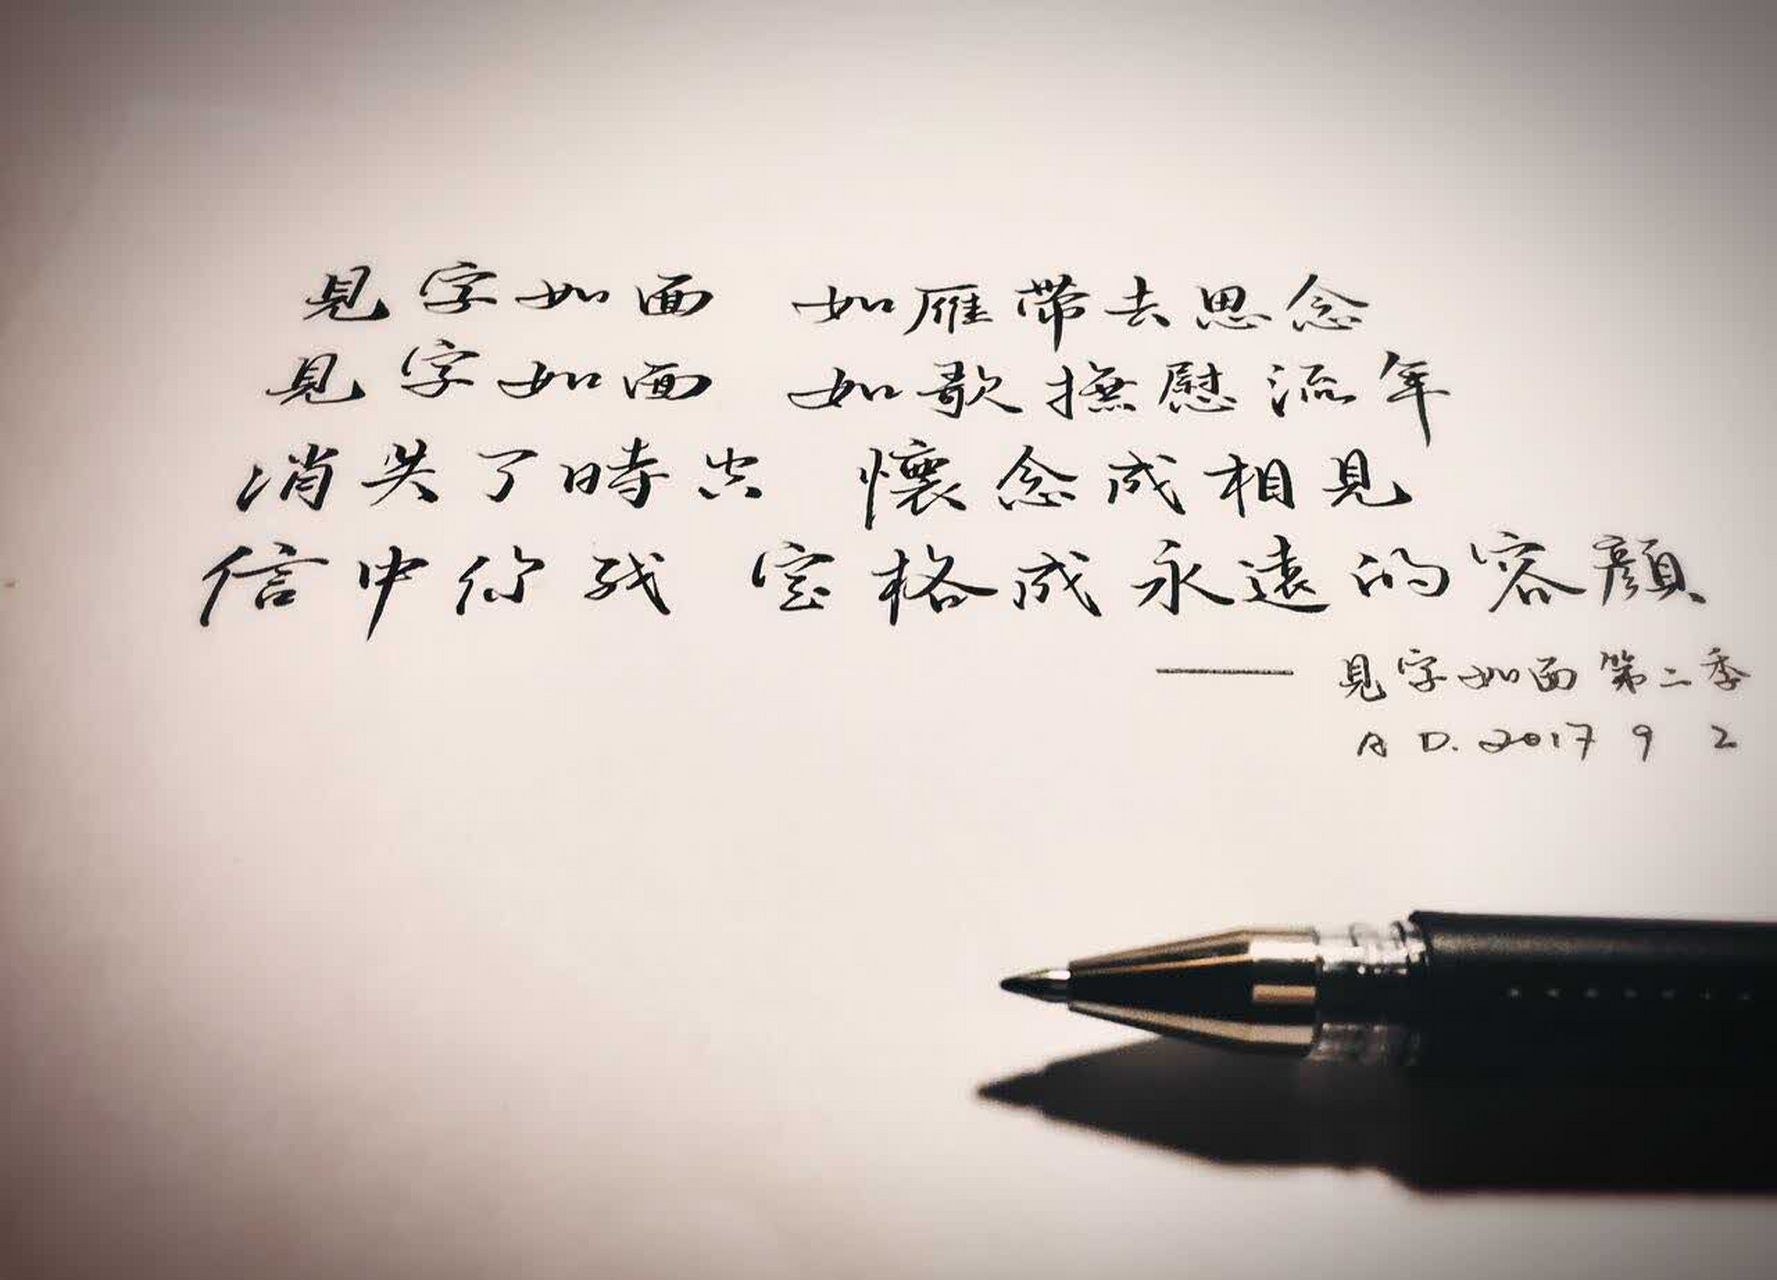 見字如面 如雁帶去思念
見字如面 如歌撫慰流年
消失了時空 懷念成相見
信中你我 定格成永遠的容顏
—— 見字如面第二季
A D. 2017 9 2